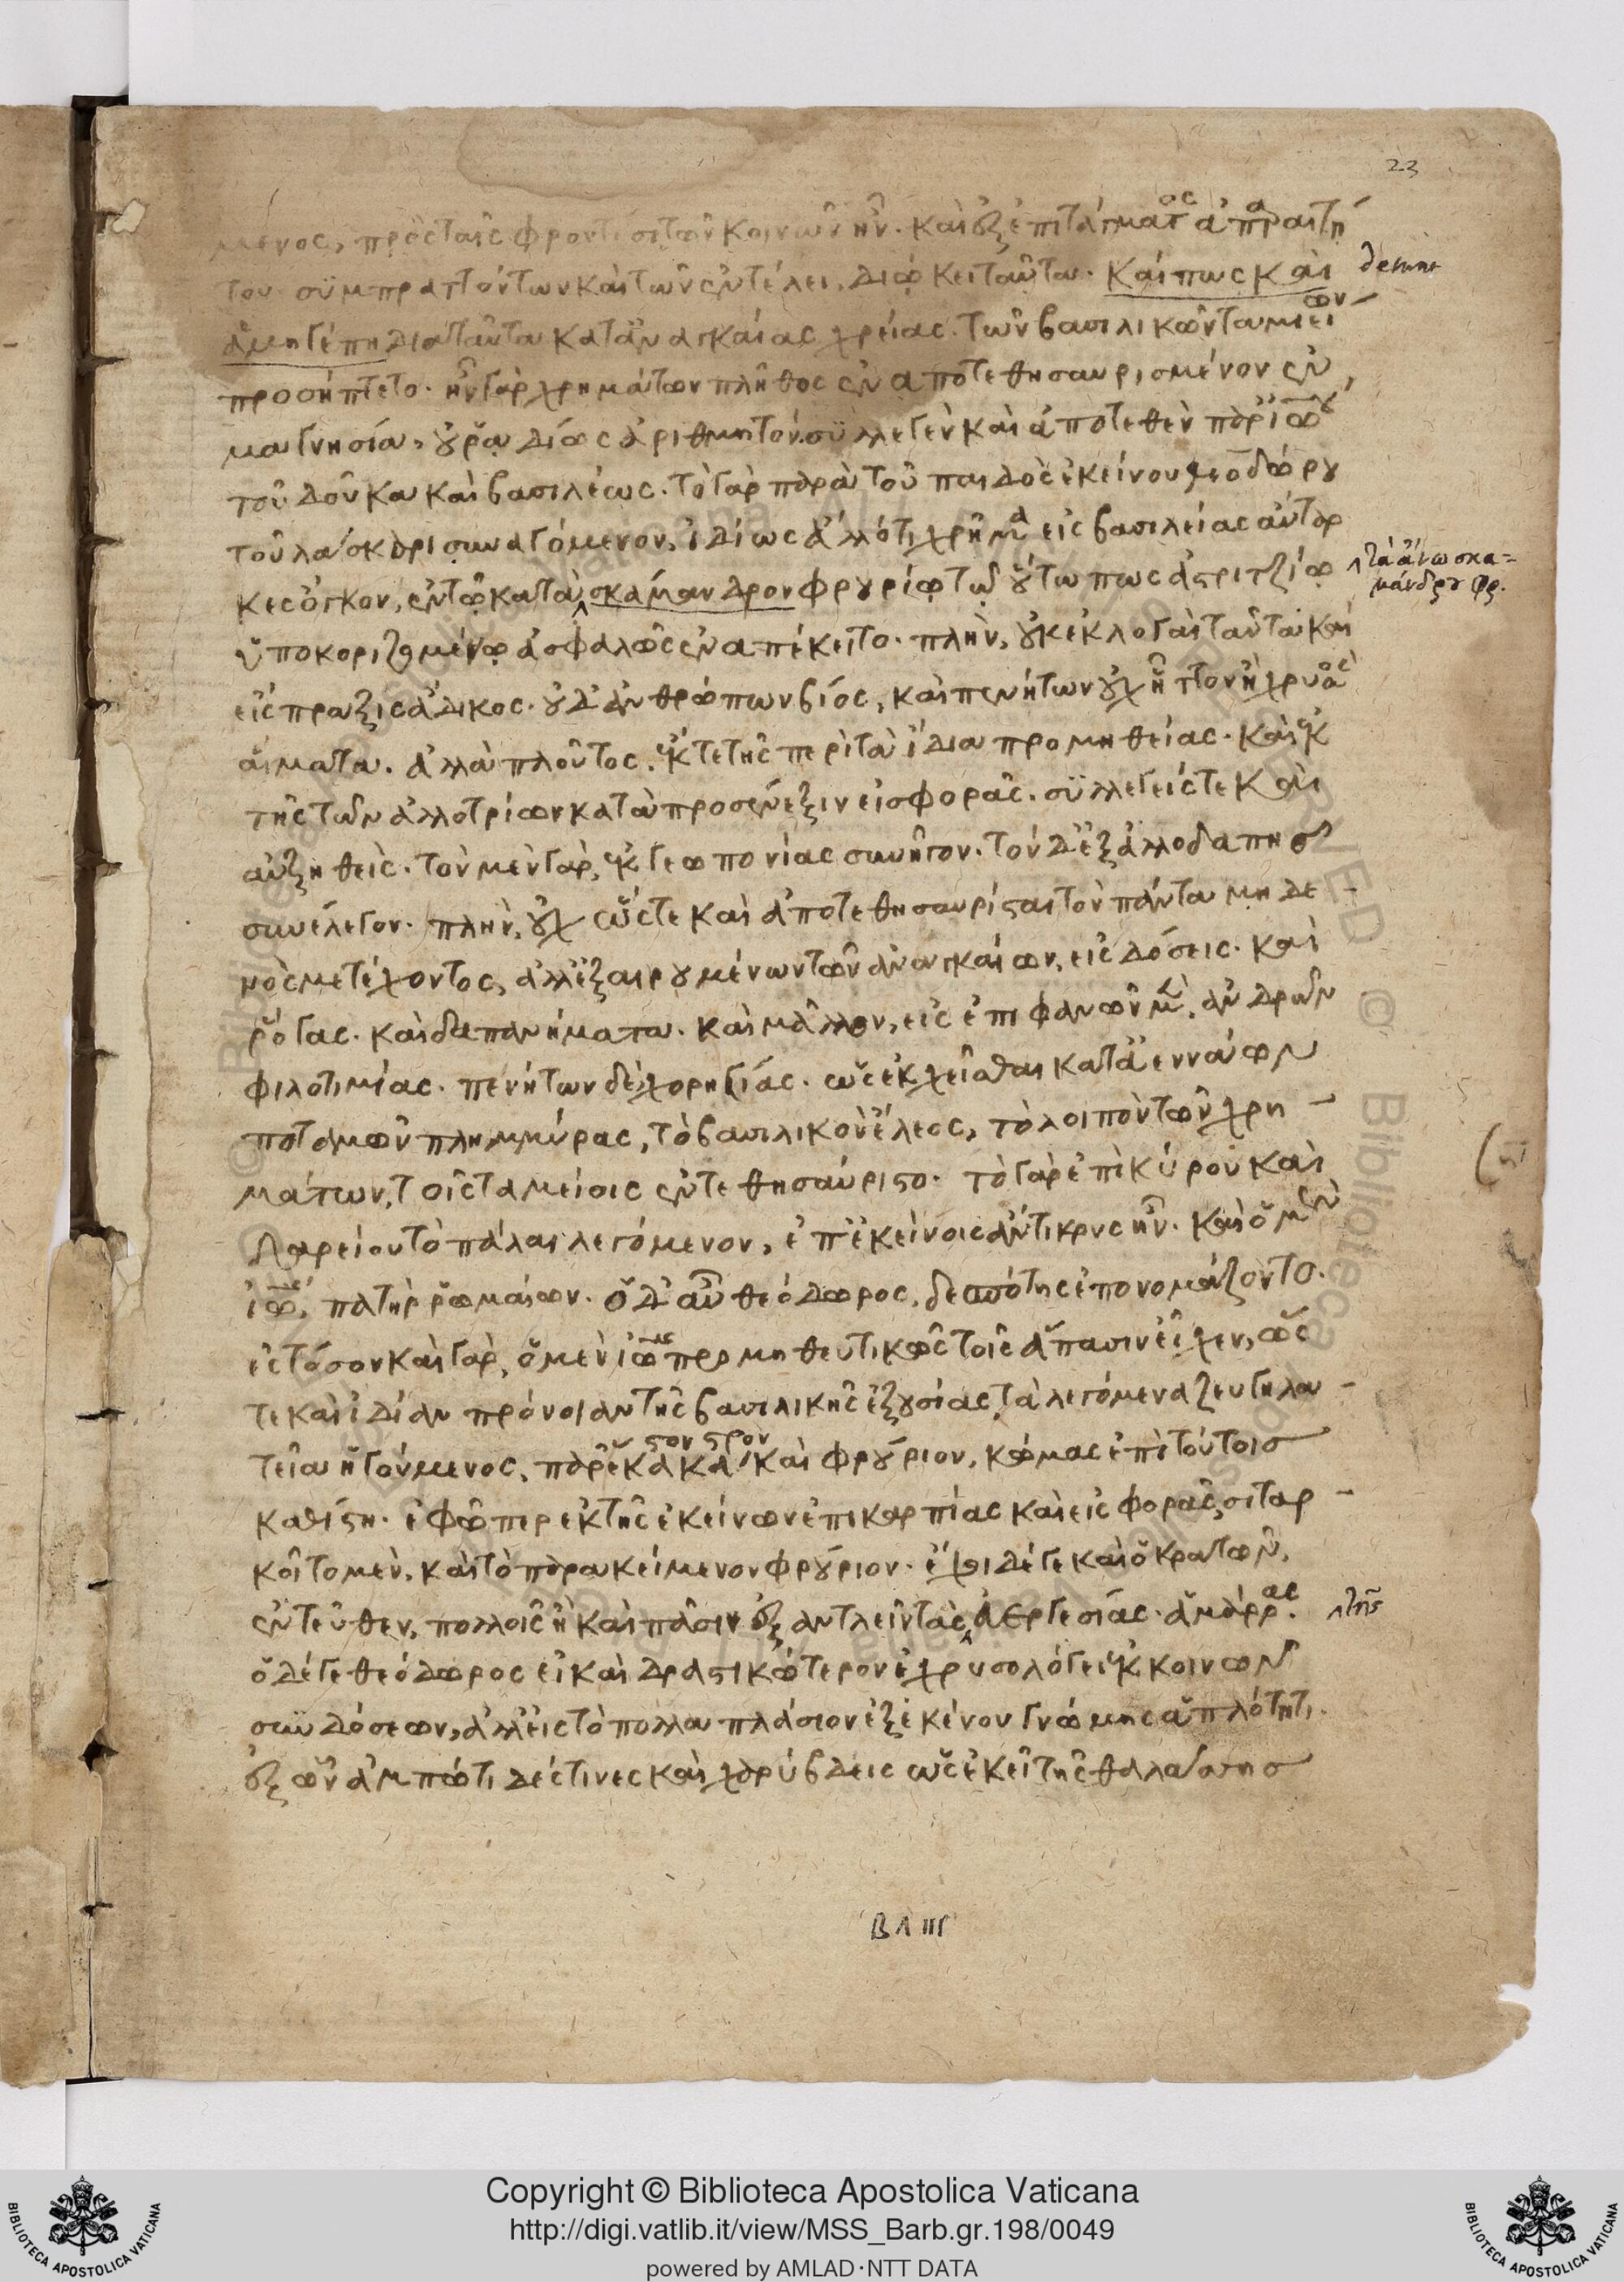 23
μενος, πρὸς ταῖς φροντίσι τῶν κοινῶν ἦν. καὶ ἐξ ἐπιτάγματος ἀπαραιτή
του συμπραττόντων καὶ τῶν ἐν τέλει, διῴκει ταῦτα. Καί πως καὶ
ἀμηγέπη διὰ ταῦτα κατ᾽ ἀναγκαίας χρείας. τῶν βασιλικῶν ταμιείων
προσήπτετο. ἦν γὰρ χρημάτων πλῆθος ἐναποτεθησαυρισμένον ἐν
μαγνησία, οὐ ῥᾳδίως ἀριθμητόν. συλλεγὲν καὶ ἀποτεθὲν παρ᾽ ἰω
τοῦ δούκα καὶ βασιλέως. τὸ γὰρ παρὰ τοῦ παιδὸς ἐκείνου θεοδώρου
τοῦ λάσκαρι συναγόμενον, ἰδίως ἀλλότι χρῆμα εἰς βασιλείας αὐτάρ
κες ὄγκον, ἐν τῷ κατὰ σκάμανδρον φρουρίῳ τῷ οὕτω πως ἀστριτζίῳ
τὰ ἄνω σκα=
μάνδρου φρ.
ὑποκοριζομένῳ ἀσφαλῶς ἐναπέκειτο. πλὴν, οὐκ ἐκλογαὶ ταῦτα καὶ
εἴςπραξις ἄδικος. οὐδ᾽ ἀνθρώπων βίος, καὶ πενήτων οὐχ ἧττον ἢ χρυσὸς
αἵματα. ἀλλὰ πλοῦτος, ἔκ τε τῆς περὶ τὰ ἴδια προμηθείας. καὶ ἐκ
τῆς τῶν ἀλλοτρίων κατὰ προσένεξιν εἰσφορᾶς. συλλεγείς τε καὶ
αὐξηθεὶς. τὸν μὲν γὰρ, ἐκ γεωπονίας συνῆγον. τὸν δ᾽ ἐξ ἀλλοδαπῆς
συνέλεγον. πλὴν, οὐχ ὥστε καὶ ἀποτεθησαυρίσαι τὸν πάντα μηδε
νὸς μετέχοντος, ἀλλ᾽ ἐξαιρουμένων τῶν ἀναγκαίων, εἰς δόσεις. καὶ
ῥόγας. καὶ δαπανήματα. καὶ μᾶλλον, εἰς ἐπιφανῶν μὲν ἀνδρῶν
φιλοτιμίας. πενήτων δὲ χορηγίας. ὡς ἐκχεῖσθαι κατ᾽ ἀεννάων
ποταμῶν πλημμύρας, τὸ βασιλικὸν ἔλεος, τὸ λοιπὸν τῶν χρη
μάτων, τοῖς ταμείοις ἐντεθησαύριστο. τὸ γὰρ ἐπὶ κύρου καὶ
Δαρείου τὸ πάλαι λεγόμενον, ἐπ᾽ ἐκείνοις ἄντικρυς ἦν. καὶ ὁ μὲν
ἰω, πατὴρ ῥωμαίων. ὁ δ᾽ αὖ θεόδωρος, δεσπότης ἐπονομάζοντο.
ἐς τόσον καὶ γὰρ, ὁ μὲν ἰω προμηθευτικῶς τοῖς ἅπασιν εἶχεν, ὥς
τε καὶ ἰδίαν πρόνοιαν τῆς βασιλικῆς ἐξουσίας τὰ λεγόμενα ζευγηλα
τεῖα ἡγούμενος, παρ᾽ ἕκαστον κάστρον καὶ φρούριον, κώμας ἐπὶ τούτοις
καθίστη. ἐφ᾽ ᾧπερ ἐκ τῆς ἐκείνων ἐπικαρπίας καὶ εἰςφορᾶς, σιταρ
κοῖτο μὲν, καὶ τὸ παρακείμενον φρούριον. ἔχοι δέ γε καὶ ὁ κρατῶν,
ἐντεῦθεν, πολλοῖς ἢ καὶ πᾶσιν ἐξαντλεῖν τὰς εὐεργεσίας. ἀμάρρας. τῆς
ὁ δέ γε θεόδωρος εἰ καὶ δραστικώτερον ἐχρυσολόγει ἐκ κοινῶν
συνδόσεων, ἀλλ᾽ εἰς τὸ πολλαπλάσιον ἐξεκένου γνώμης ἁπλότητι.
ἐξ ὧν ἀμπώτιδές τινες καὶ χαρύβδεις ὡς ἐκεῖ τῆς θαλάσσης
Copyright © Biblioteca Apostolica Vaticana
http://digi.vatlib.it/view/MSS_Barb.gr.198/0049
powered by AMLAD·NTT DATA
BIBLIOTECA APOSTOLICA VATICANA
BIBLIOTECA APOSTOLICA VATICANA